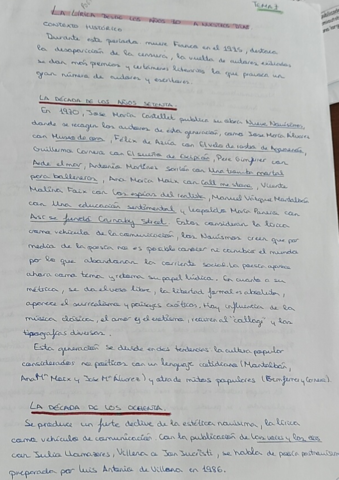 Tema 8
LA LÍRICA DESDE LOS AÑOS 70 A NUESTROS DÍAS
CONTEXTO HISTÓRICO
Durante este periodo muere Franco en el 1975, destaca
la desaparición de la censura, la vuelta de autores exiliados
se dan más premios y certámenes literarios lo que provoca un
gran número de autores y escritores.
LA DÉCADA DE LOS AÑOS SETENTA
En 1970, Jose María Castellet publica su obra Nueve Novísimos
donde se recogen los autores de esta generación, como José María Álvarez
con Museo de cera, Felix de Azúa con El velo de
Guillermo Carnera con El sueño de Escipión, Pere Gimferrer con
Arde el mar, Antonio Martínez Sarrión con Una tromba mortal
para balleneros, Ana María Moix con Call me stone, Vicente
Molina Foix con Los espías del realista, Manuel Vázquez Montalbán
con Una educación sentimental y Leopoldo María Panero con
Así se fundó Carnaby Street. Estos consideran la lírica
como vehículo de la comunicación, los Novísimos creen que por
medio de la poesía no es posible conocer ni cambiar el mundo
por lo que abandonan la corriente social. La poesía aparece
ahora como tema y retoma su papel lúdico. En cuanto a su
métrica, se da el verso libre, la libertad formal es absoluta,
aparece el surrealismo y paisajes exóticos. Hay influencia de la
música clásica, el amor y el erotismo, recurren al "collage" y las
tipografías diversas.
Esta generación se divide en dos tendencias la cultura popular
considerados no poéticos con un lenguaje cotidiano (Montalbán,
Ana Mª Moix y José Mª Álvarez) y otro de mitos populares (Gimferrer y Carnero).
LA DÉCADA DE LOS OCHENTA
Se produce un fuerte declive de la estética novísima, la lírica
como vehículo de comunicación. Con la publicación de
con Julio Llamazares, Villena o Jon Juaristi, se habla de poesía postnovísima
preparada por Luis Antonio de Villena en 1986.